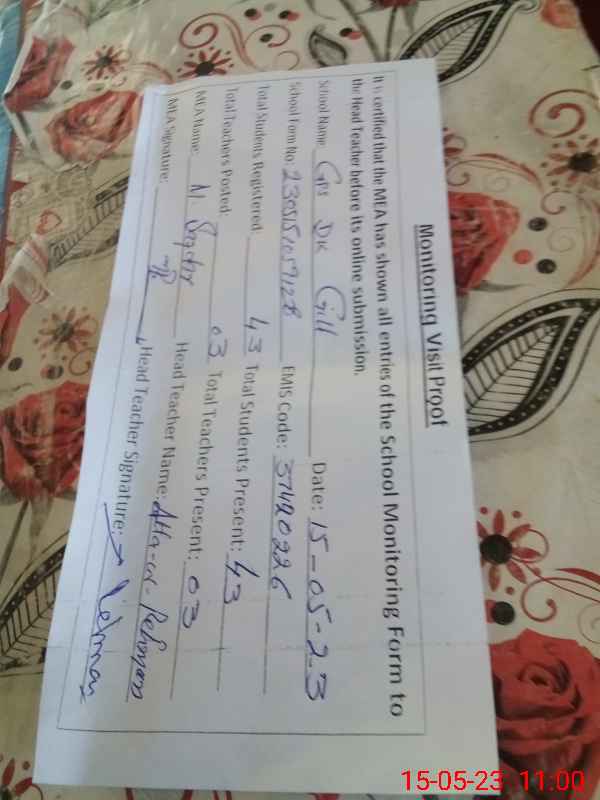 Monitoring Visit Proof
It is certified that the MEA has shown all entries of the School Monitoring Form to
the Head Teacher before its online submission.
School Name: GPS DK Gill Date: 15-05-23
School Form No: EMIS Code: 37420226
Total Students Registered: 43 Total Students Present: 43
Total Teachers Posted: 03 Total Teachers Present: 03
MEA Name: M. Head Teacher Name: Atta-ur-Rehman
MEA Signature: Head Teacher Signature:
15-05-23 11:00